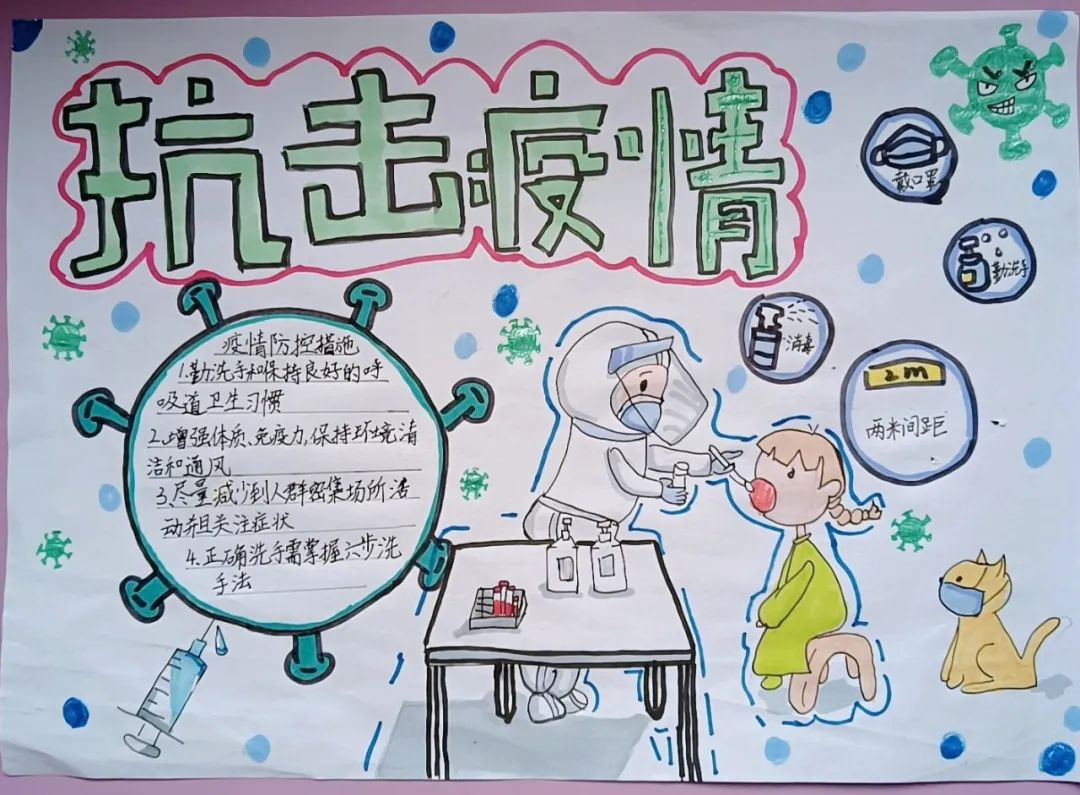 抗击疫情
戴口罩
勤洗手
消毒
2m
两米间距
疫情防控措施
1.勤洗手和保持良好的呼
吸道卫生习惯
2.增强体质、免疫力,保持环境清
洁和通风
3.尽量减少到人群密集场所活
动并且关注症状
4.正确洗手需掌握六步洗
手法